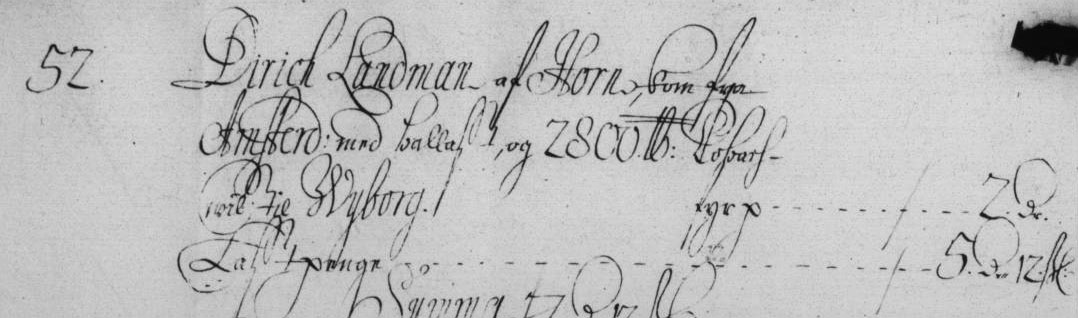 52. Dirich Landman af Horn, kom fra
Amsterd: med ballast, og 2800 lb: Tobach-
will til Wyborg.
2. Dr.
Lastpenge 5. Dr 12 sk.
Summa 7 Dr 12 sk